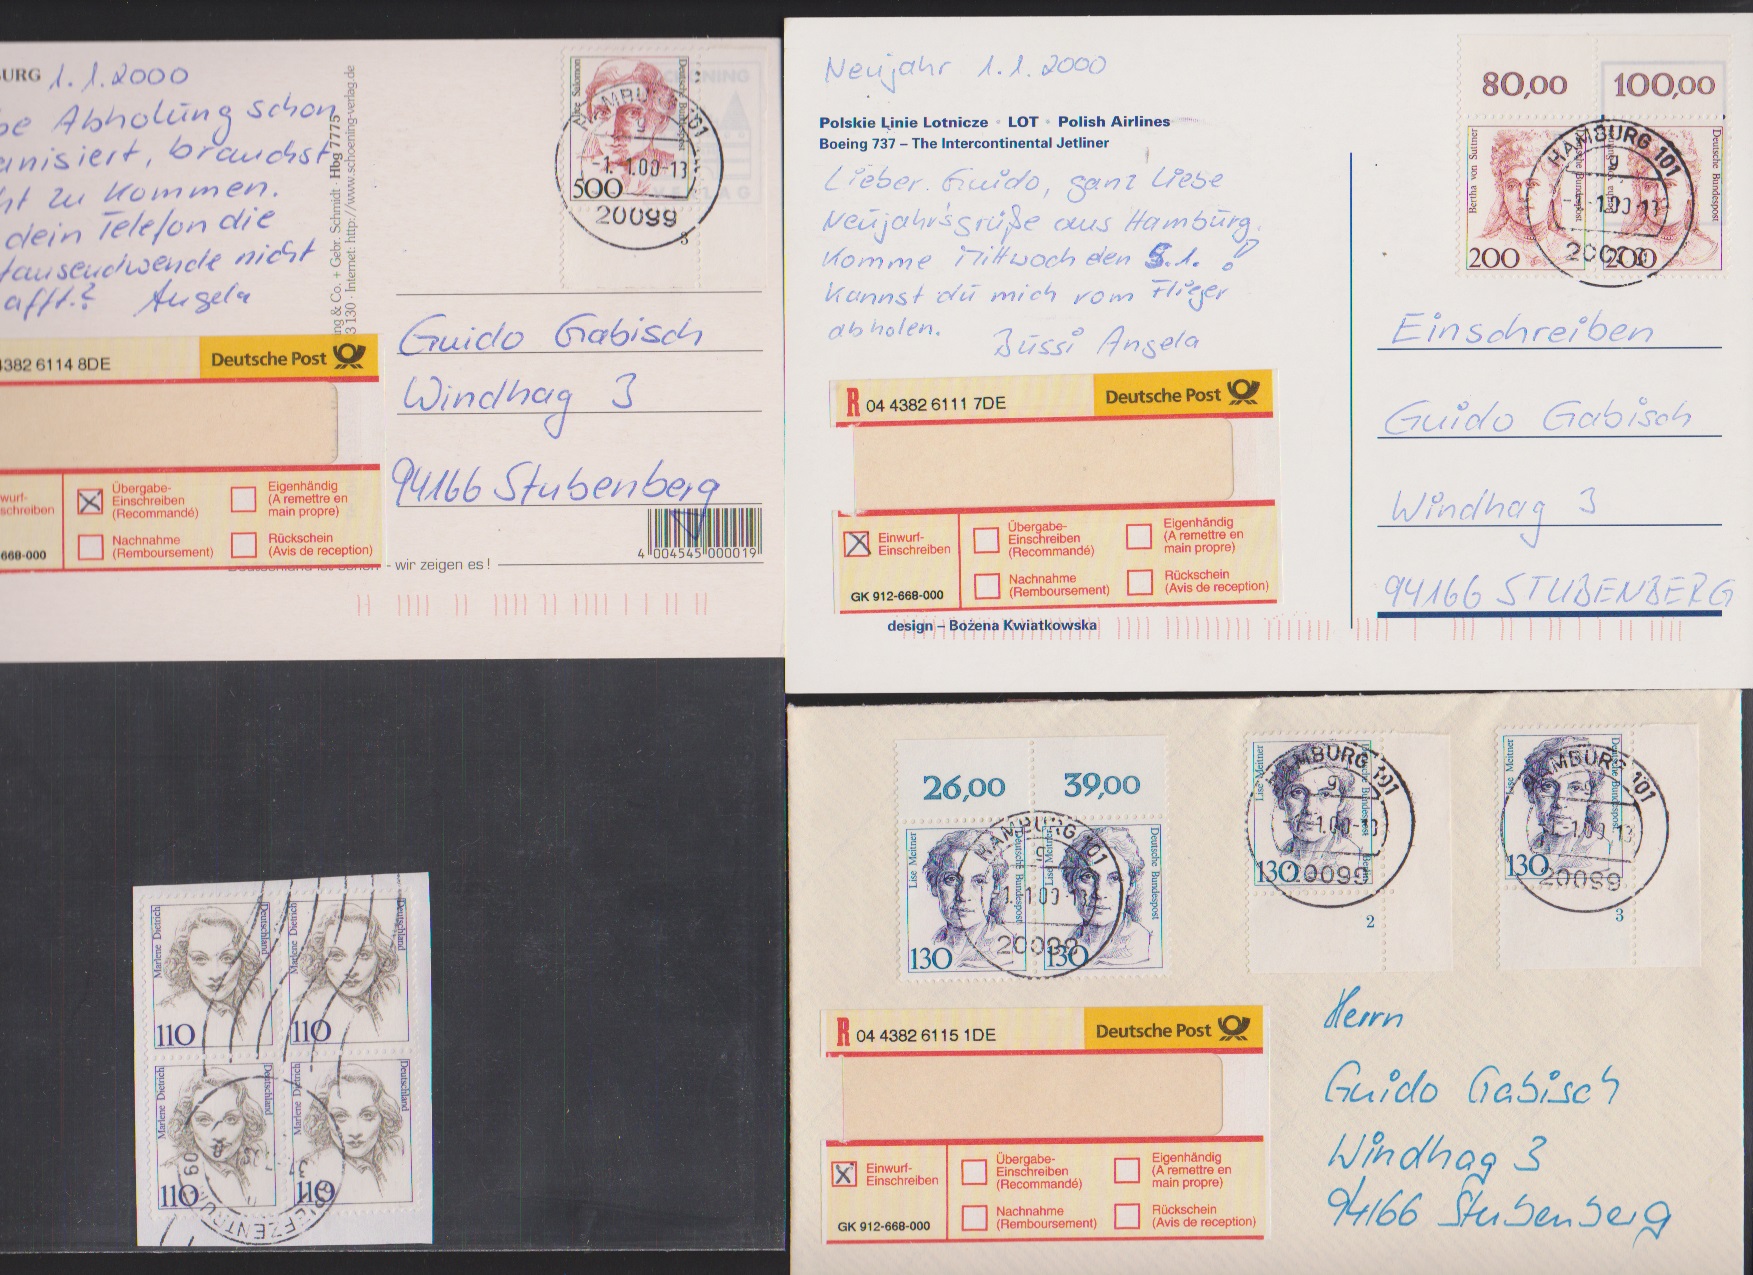 BURG 1.1.2000
be Abholung schon
anisiert, brauchst
ht zu kommen.
dein Telefon die
tausendwende nicht
afft? Angela
ng & Co. + Gebr. Schmidt · Hbg 7775
3 130 · Internet: http://www.schoening-verlag.de
Deutsche Bundespost
500
HAMBURG 101
g
-1.-1.00-13
20099
3
Guido Gabisch
Windhag 3
94166 Stubenberg
4382 6114 8DE
Deutsche Post
wurf-
schreiben
Übergabe-
Einschreiben
(Recommandé)
Eigenhändig
(A remettre en
main propre)
Nachnahme
(Remboursement)
Rückschein
(Avis de reception)
668-000
4 004545 000019
- wir zeigen es !
Neujahr 1.1.2000
Polskie Linie Lotnicze · LOT · Polish Airlines
Boeing 737 – The Intercontinental Jetliner
Lieber Guido, ganz liebe
Neujahrsgrüße aus Hamburg.
Komme Mittwoch den 5.1. !?
Kannst du mich vom Flieger
abholen.
Bussi Angela
80,00 100,00
Bertha von Suttner
Deutsche Bundespost
200 200
HAMBURG 101
g
Einschreiben
Guido Gabisch
Windhag 3
94166 STUBENBERG
R 04 4382 6111 7DE
Deutsche Post
Einwurf-
Einschreiben
Übergabe-
Einschreiben
(Recommandé)
Eigenhändig
(A remettre en
main propre)
Nachnahme
(Remboursement)
Rückschein
(Avis de reception)
GK 912-668-000
design – Bożena Kwiatkowska
Marlene Dietrich
Deutschland
110
Marlene Dietrich
Deutschland
110
Marlene Dietrich
Deutschland
110
Marlene Dietrich
Deutschland
110
BRIEFZENTRUM
60
26,00 39,00
Lise Meitner
Deutsche Bundespost
130
Lise Meitner
Deutsche Bundespost
130
HAMBURG 101
g
20099
Lise Meitner
130
HAMBURG 101
g
20099
2
Lise Meitner
Deutsche Bundespost
130
HAMBURG 101
g
20099
3
R 04 4382 6115 1DE
Deutsche Post
Einwurf-
Einschreiben
Übergabe-
Einschreiben
(Recommandé)
Eigenhändig
(A remettre en
main propre)
Nachnahme
(Remboursement)
Rückschein
(Avis de reception)
GK 912-668-000
Herrn
Guido Gabisch
Windhag 3
94166 Stubenberg